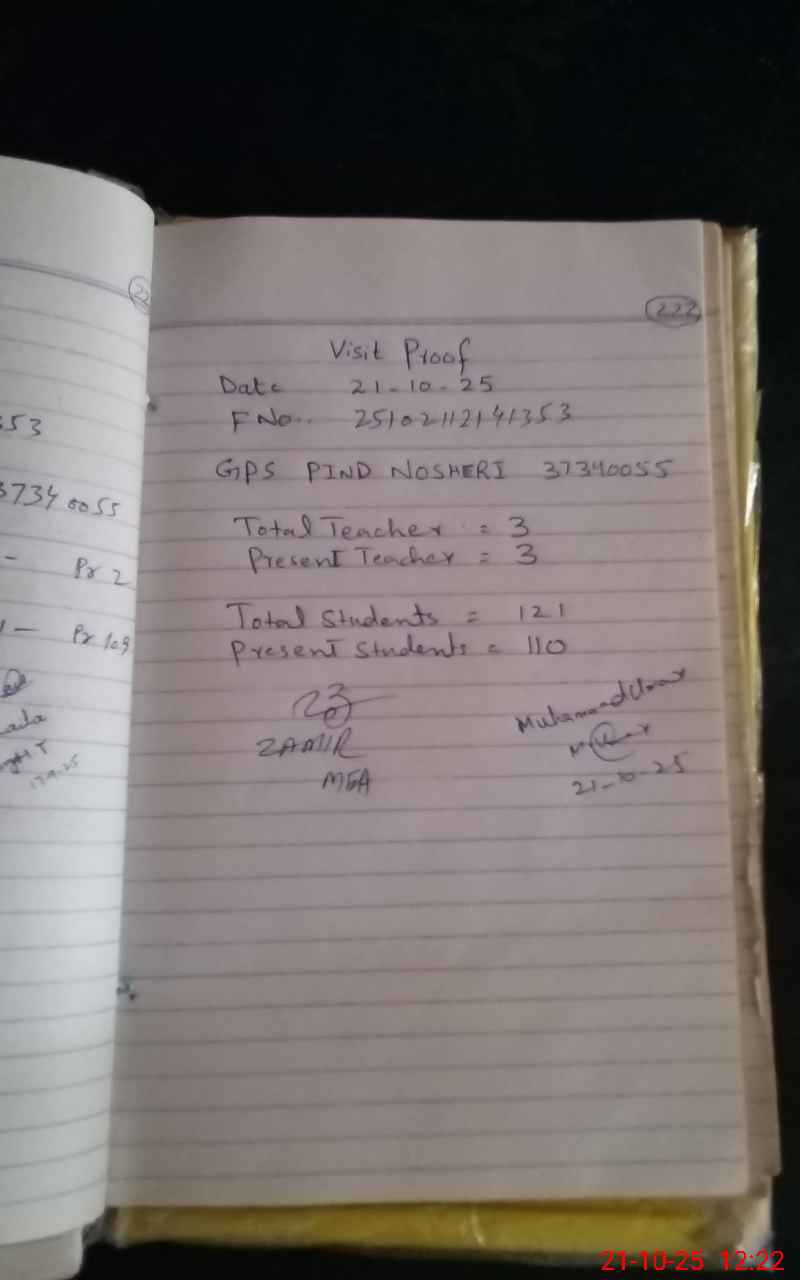 22
353
37340055
- Pr 2
- Pr 109
222
Visit Proof
Date 21-10-25
F No.. 25102112141353
GPS PIND NOSHERI 37340055
Total Teacher = 3
Present Teacher = 3
Total Students = 121
Present Students = 110
ZAMIR
MEA
Muhammad Umar
21-10-25
21-10-25 12:22